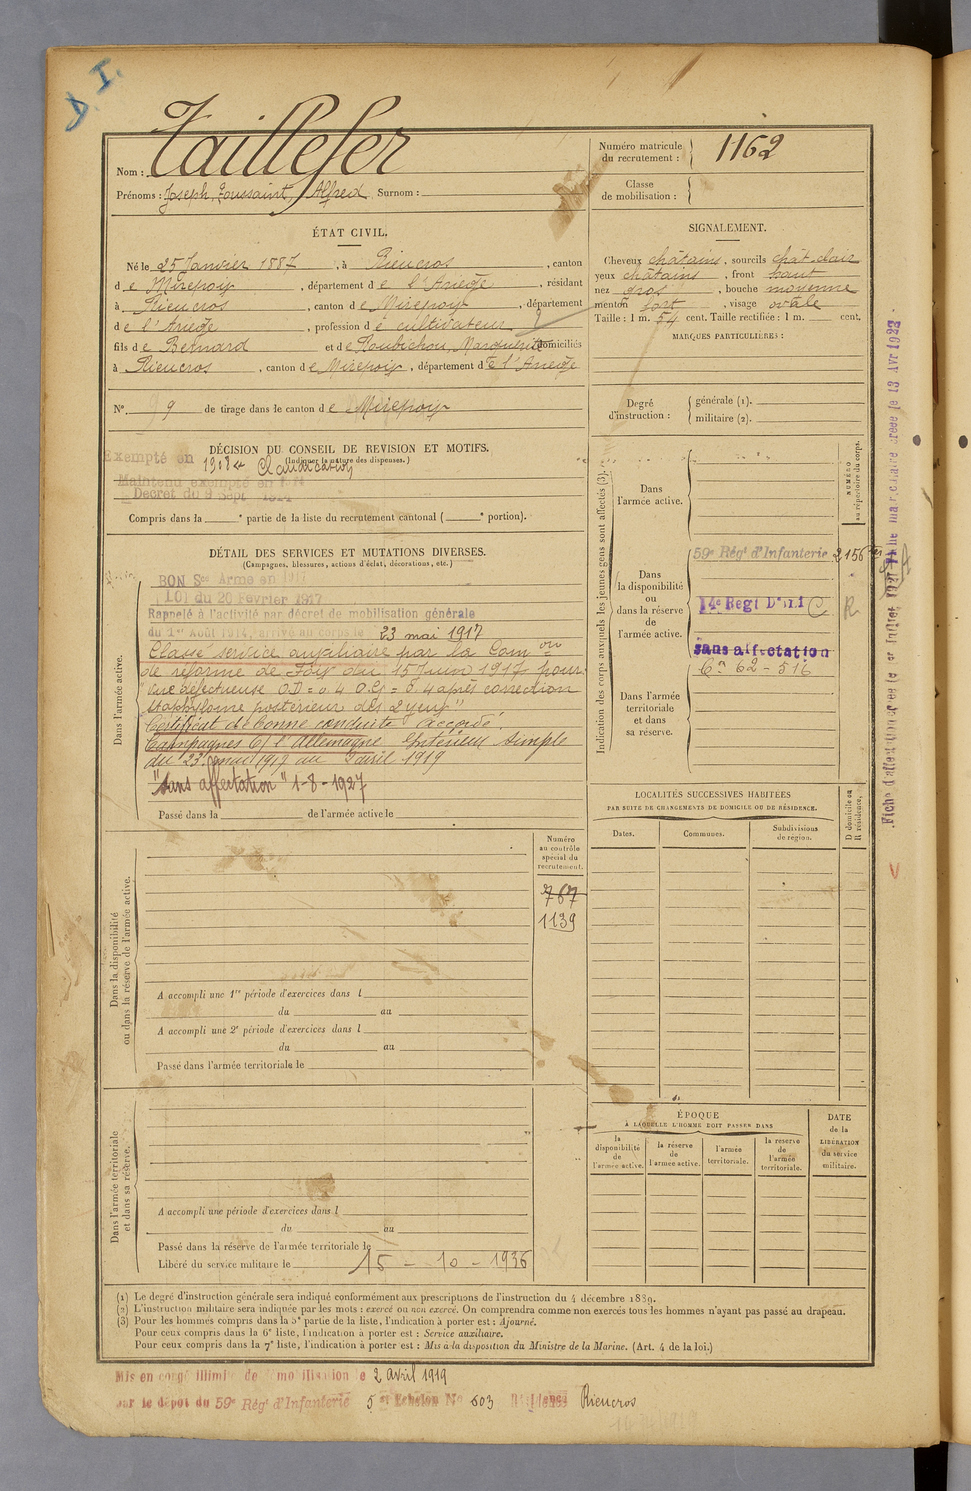 D. I.
Taillefer
Nom :
Numéro matricule du recrutement : 1162
Prénoms : Joseph, Toussaint, Alfred Surnom :
Classe de mobilisation :
ÉTAT CIVIL.
Né le 25 Janvier 1887, à Rieucros, canton
de Mirepoix, département de l'Ariège, résidant
à Rieucros, canton de Mirepoix, département
de l'Ariège, profession de cultivateur
fils de Bernard et de Roubichou, Marguerite domiciliés
à Rieucros, canton de Mirepoix, département de l'Ariège
N° 9 de tirage dans le canton de Mirepoix
SIGNALEMENT.
Cheveux châtains, sourcils chât. clair
yeux châtains, front haut
nez gros, bouche moyenne
menton fort, visage ovale
Taille : 1 m. 54 cent. Taille rectifiée : 1 m. cent.
MARQUES PARTICULIÈRES :
Degré d'instruction : générale (1). militaire (2).
DÉCISION DU CONSEIL DE REVISION ET MOTIFS.
(Indiquer la nature des dispenses.)
Exempté en 1908 Claudication
Maintenu exempté en
Décret du 9 Sept 1914
Compris dans la ° partie de la liste du recrutement cantonal ( ° portion).
DÉTAIL DES SERVICES ET MUTATIONS DIVERSES.
(Campagnes, blessures, actions d'éclat, décorations, etc.)
Dans l'armée active.
BON Sce Armé en 1917
Loi du 20 Février 1917
Rappelé à l'activité par décret de mobilisation générale
du 1er Août 1914, arrivé au corps le 23 mai 1917
Classé service auxiliaire par la Com on
de réforme de Foix du 15 Juin 1917 pour
vue défectueuse OD = 0.4 O.G = 0.4 après correction
staphylome postérieur des 2 yeux"
Certificat de bonne conduite accordé.
Campagnes C/ l'Allemagne Intérieur simple
du 23 mai 1917 au 2 avril 1919
"Sans affectation" 1-8-1927
Passé dans la de l'armée active le
Indication des corps auxquels les jeunes gens sont affectés (3).
NUMÉRO au répertoire du corps.
Dans l'armée active.
Dans la disponibilité ou dans la réserve de l'armée active.
59e Régt d'Infanterie 2156
14e Regt D'Inf C R
sans affectation
Con 62 - 516
Dans l'armée territoriale et dans sa réserve.
LOCALITÉS SUCCESSIVES HABITÉES
PAR SUITE DE CHANGEMENTS DE DOMICILE OU DE RÉSIDENCE.
Dates. Communes. Subdivisions de région. D domicile ou R résidence.
Dans la disponibilité ou dans la réserve de l'armée active.
Numéro au contrôle spécial du recrutement.
767
1139
A accompli une 1re période d'exercices dans l
du au
A accompli une 2e période d'exercices dans l
du au
Passé dans l'armée territoriale le
Dans l'armée territoriale et dans sa réserve.
A accompli une période d'exercices dans l
du au
Passé dans la réserve de l'armée territoriale le
Libéré du service militaire le 15 - 10 - 1936
ÉPOQUE
À LAQUELLE L'HOMME DOIT PASSER DANS
la disponibilité de l'armée active. la réserve de l'armée active. l'armée territoriale. la réserve de l'armée territoriale.
DATE de la LIBÉRATION du service militaire.
(1) Le degré d'instruction générale sera indiqué conformément aux prescriptions de l'instruction du 4 décembre 1889.
(2) L'instruction militaire sera indiquée par les mots : exercé ou non exercé. On comprendra comme non exercés tous les hommes n'ayant pas passé au drapeau.
(3) Pour les hommes compris dans la 5e partie de la liste, l'indication à porter est : Ajourné.
Pour ceux compris dans la 6e liste, l'indication à porter est : Service auxiliaire.
Pour ceux compris dans la 7e liste, l'indication à porter est : Mis à la disposition du Ministre de la Marine. (Art. 4 de la loi.)
Mis en congé illimité de démobilisation le 2 avril 1919
par le dépôt du 59e Régt d'Infanterie 5 Echelon No 603 Résidence Rieucros